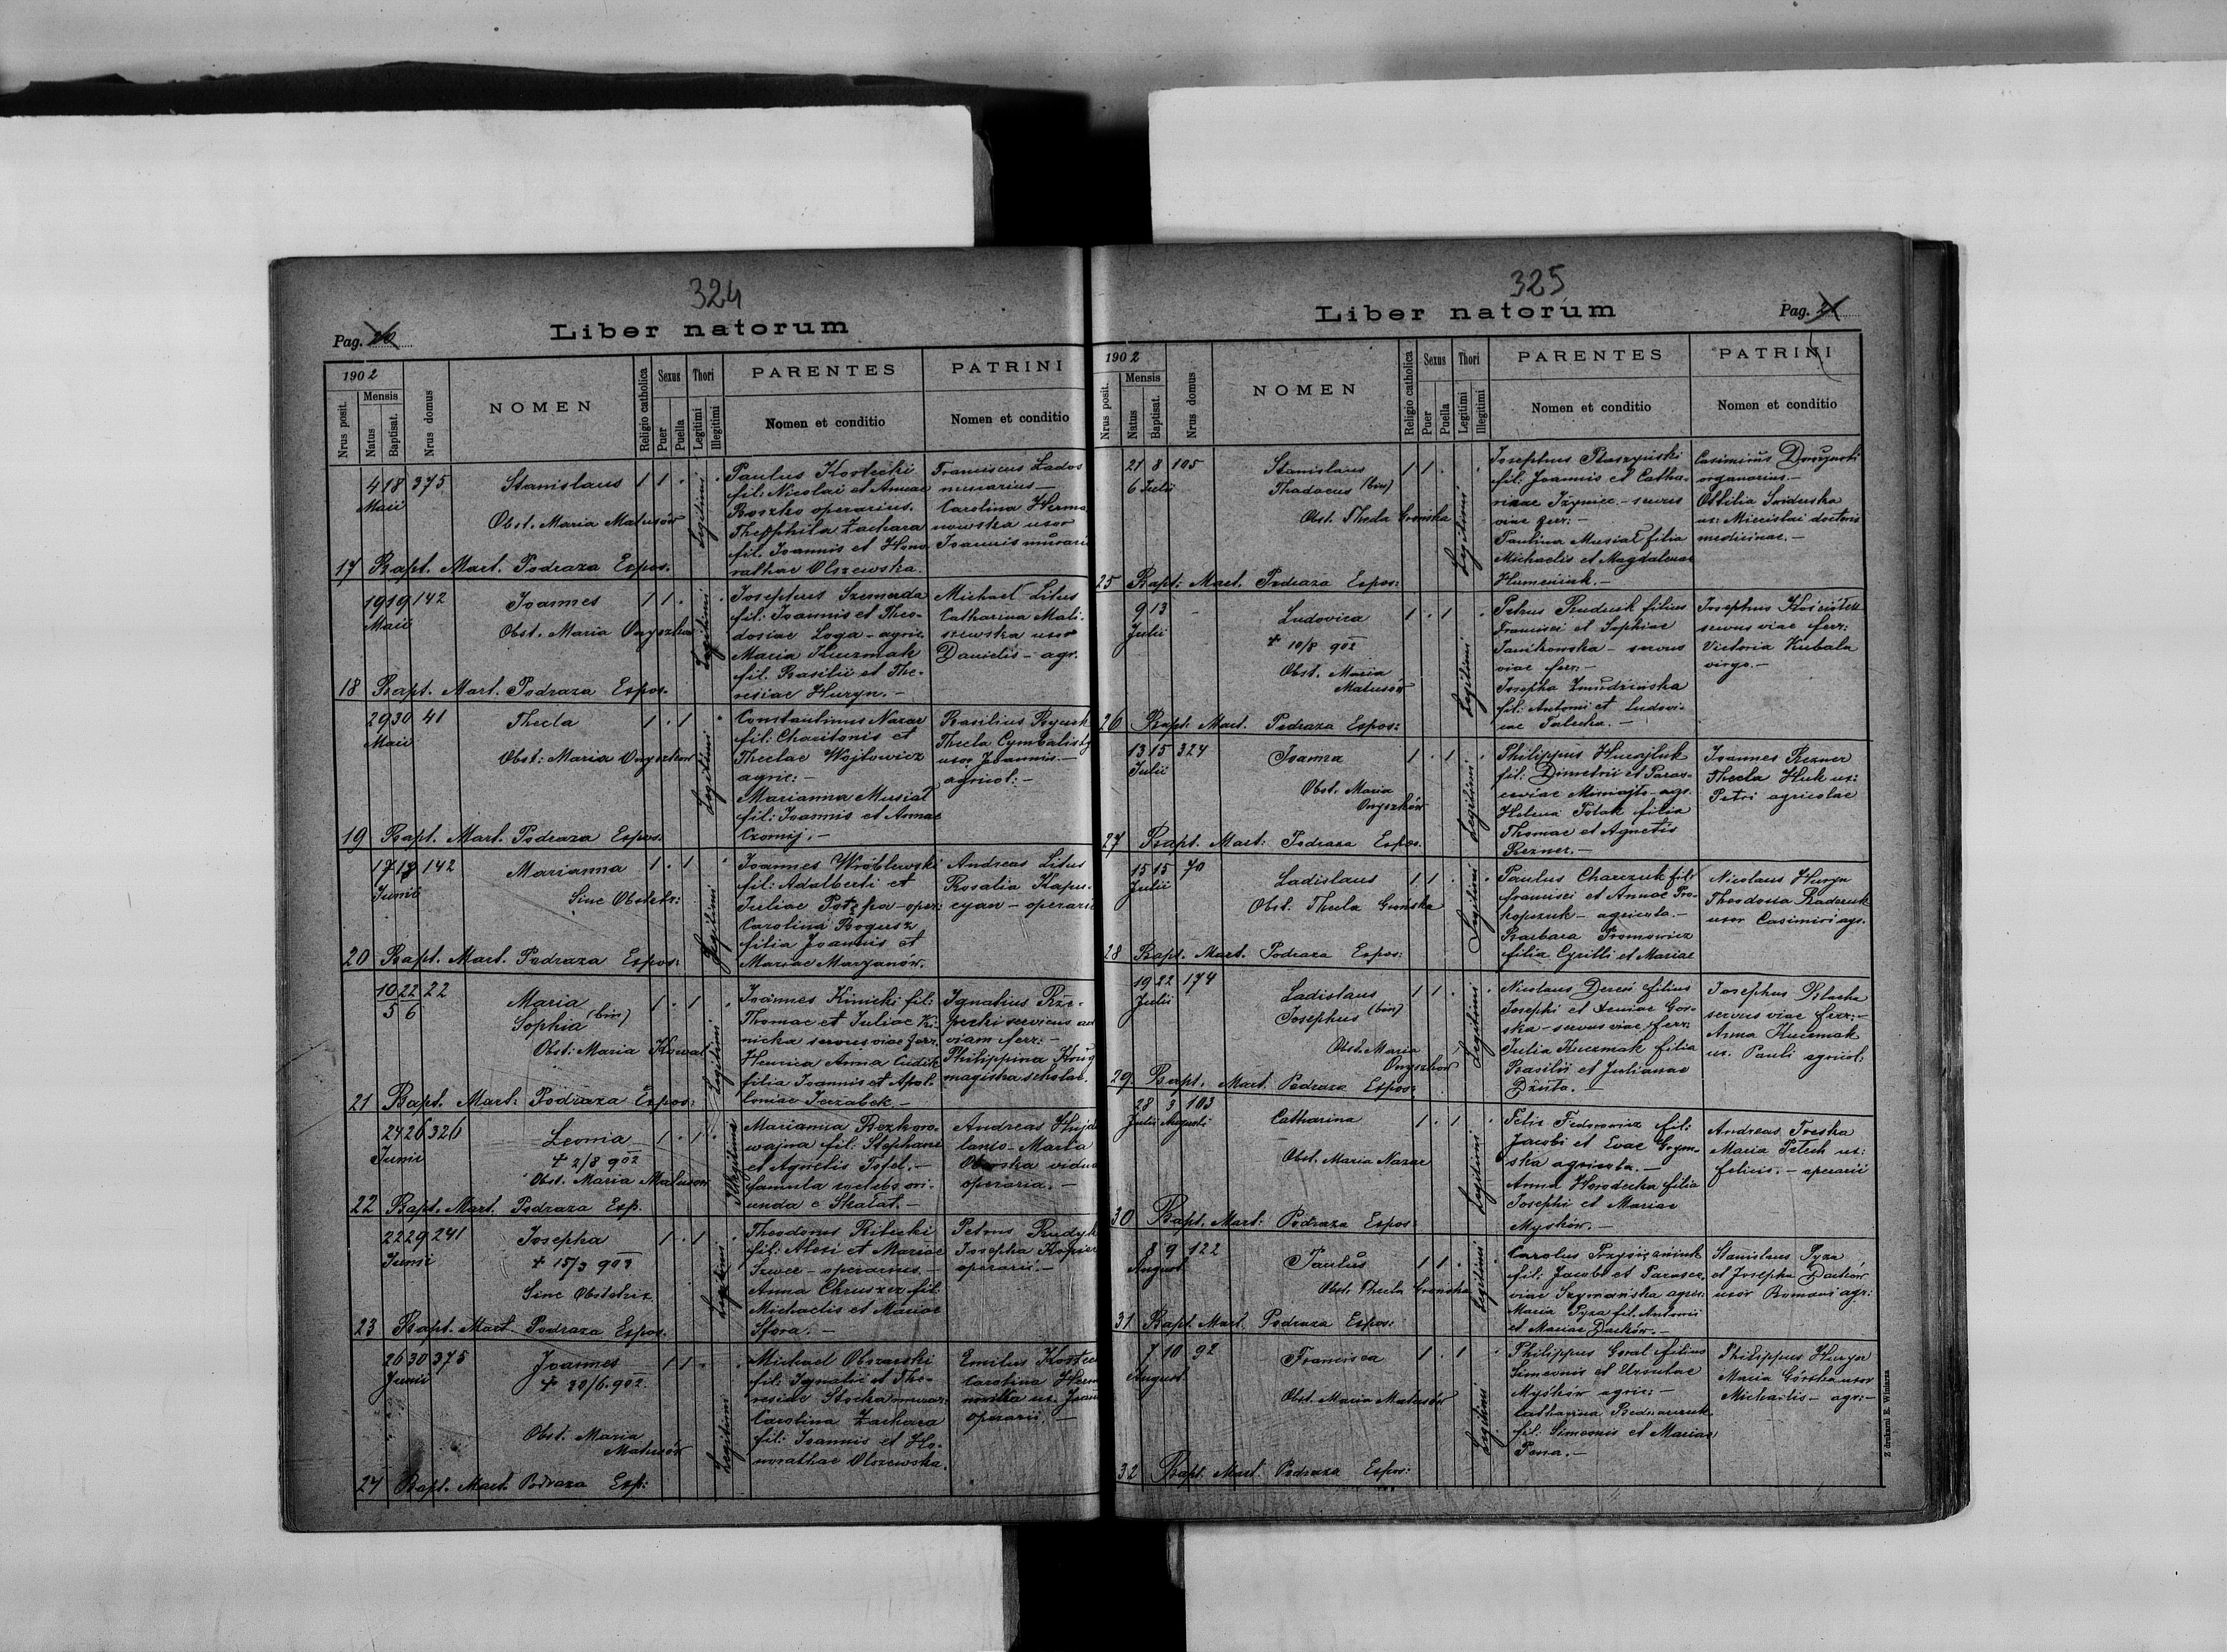 324
Liber natorum
Pag. 20
1902
Nrus posit.
Mensis
Natus
Baptisat.
Nrus domus
NOMEN
Religio catholica
Sexus
Puer
Puella
Thori
Legitimi
Illegitimi
PARENTES
Nomen et conditio
PATRINI
Nomen et conditio
4 18 375 Stanislaus 1 1 . Legitimi . Paulus Kostecki Franciscus Łados
Maii fil: Nicolai et Annae murarius —
Roszko operarius. Carolina Herma
Obst. Maria Matusów Theophila Zachara nowska uxor
fil. Joannis et Hono- Joannis murarii
17 Bapt. Mart. Podraza Expos. rathae Olszewska.
19 19 142 Joannes 1 1 . Legitimi . Josephus Szemerda Michael Litus
Maii fil: Joannis et Theo- Catharina Mali-
Obst. Maria Onyszków dosiae Łoga - agric. szewska uxor
Maria Kuczmak Danielis - agr.
fil. Basilii et The-
18 Bapt. Mart. Podraza Expos. resiae Huryn. —
29 30 41 Thecla 1 . 1 Legitimi . Constantinus Nazar Basilius
Maii fil: Charitonis et Thecla Cymbalisty
Obst: Maria Onyszków Theclae Wojtowicz uxor Joannis —
agric: — agricol: —
Marianna Musiał
fil: Joannis et Annae
19 Bapt. Mart. Podraza Expos. Czornij. —
17 17 142 Marianna 1 . 1 Legitimi . Joannes Wróblewski Andreas Litus
Junii fil: Adalberti et Rosalia Kapu-
Sine Obstetr: Juliae - oper: cyan - operarii
Carolina Bogusz
filia Joannis et
20 Bapt. Mart. Podraza Expos: Mariae Maryanów.
10 22 22 Maria 1 . 1 Legitimi . Joannes Kinicki fil: Ignatius
5 6 Sophia (bin) Thomae et Juliae Ki-
Obst: Maria Kowal nicka servus viae ferr. viam ferr: —
Henrica Anna Philippina
filia Joannis et Apol- magistra scholae.
21 Bapt. Mart: Podraza Expos: loniae Jarzabek. —
24 26 326 Leonia 1 . 1 . Illegitimi Marianna Bezkoro- Andreas
Junii wajna fil: Stephani Maria
+ 2/8 902 et Agnetis Fotel. — vidua
Obst. Maria Matusów famula coelebs ori- operaria. —
22 Bapt. Mart. Podraza Exp. unda e Skałat. —
22 29 241 Josepha 1 . 1 Legitimi . Theodorus Petrus Rudyk
Junii fil: Alexi et Mariae Josepha
+ 15/3 903 Szwec - operarius. — operarii. —
Sine Obstetrix Anna fil:
Michaelis et Mariae
23 Bapt. Mart Podraza Expos. Sfora. —
26 30 375 Joannes 1 1 . Legitimi . Michael Obszarski Emilus
Junii fil: Ignatii et The- Carolina
+ 30/6. 902 resiae Stocka murar:
Obst. Maria Carolina Zachara operarii. —
Matusów fil: Joannis et Ho-
norathae Olszewska.
24 Bapt. Mart. Podraza Exp:
325
Liber natorum
Pag. 21
1902
Nrus posit.
Mensis
Natus
Baptisat.
Nrus domus
NOMEN
Religio catholica
Sexus
Puer
Puella
Thori
Legitimi
Illegitimi
PARENTES
Nomen et conditio
PATRINI
Nomen et conditio
21 8 105 Stanislaus 1 1 . Legitimi . Josephus Staszyński Casimirus
6 Julii Thadaeus (bin) fil: Joannis et Catha- organarius. —
Obst. Thecla Gronska rinae - servus Ottilia Świderska
viae ferr: — ux: Miecislai doctoris
Paulina Musiał filia medicinae. —
Michaelis et Magdalenae
25 Bapt: Mart. Podraza Expos: Humeniuk. —
9 13 - Ludovica 1 . 1 Legitimi . Petrus filius Josephus
Julii Francisci et Sophiae servus viae ferr:
+ 10/8 902 Janikowska - servus Victoria Kubala
Obst. Maria viae ferr: — virgo. —
Matusów Josepha Żmudzińska
fil: Antonii et Ludovi-
26 Bapt: Mart. Podraza Expos: cae
13 15 324 Joanna 1 . 1 Legitimi . Philippus Joannes Rezner
Julii fil: Dimetrii et Paras- Thecla Huk ux:
Obst. Maria ceviae - agr. Petri agricolae
Onyszków Helena Polak filia
Thomae et Agnetis
27 Bapt. Mart: Podraza Expos. Rezner. —
15 15 70 Ladislaus 1 1 . Legitimi . Paulus Charczuk fil: Nicolaus Huryn
Julii Francisci et Annae Pro- Theodosia
Obst. Thecla Gronska kopczuk - agricola. — uxor Casimiri agr.
Barbara Fromowicz
28 Bapt. Mart. Podraza Expos: filia Cyrilli et Mariae
19 22 174 Ladislaus 1 1 . Legitimi . Nicolaus Dereń filius Josephus
Julii Josephus (bin) Josephi et Xeniae Gor- servus viae ferr: —
Obst: Maria ska - servus viae ferr: Anna Kuczmak
Onyszków Julia Kuczmak filia ux. Pauli agricol:
Basilii et Julianae
29 Bapt. Mart. Podraza Expos:
28 3 103 Catharina 1 . 1 Legitimi . Felix Fedorowicz fil: Andreas Troska
Julii Augusti Jacobi et Evae Maria ux:
Obst. Maria Nazar ska agricola. — Felicis. — operarii
Anna Horodecka filia
Josephi et Mariae
30 Bapt. Mart: Podraza Expos: Myśków. —
8 9 122 Paulus 1 1 . Legitimi . Carolus Stanislaus Pyza
August fil: Jacobi et Parasce- et Josepha Daćków
Obst. Thecla Gronska viae Szymańska agric: uxor Romani agr:
Maria Pyza fil. Antonii
31 Bapt. Mart. Podraza Expos: et Mariae Daćków. —
7 10 92 Francisca 1 . 1 Legitimi . Philippus Goral filius Philippus Huryn
August Simeonis et Ursulae Maria Górska uxor
Obst. Maria Matusów Myśków agric: — Michaelis - agr: —
Catharina Bednarczuk
fil: Simeonis et Mariae
32 Bapt. Mart: Podraza Expos:
Z drukarni E. Winiarza